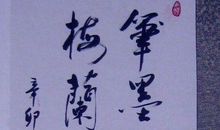 筆墨
梅蘭
辛卯